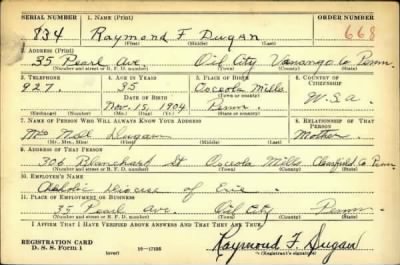 SERIAL NUMBER 1. NAME (Print) ORDER NUMBER
834 Raymond F Dugan 668
(First) (Middle) (Last)
2. ADDRESS (Print)
35 Pearl Ave. Oil City Venango Co Penn.
(Number and street or R. F. D. number) (Town) (County) (State)
3. TELEPHONE 4. AGE IN YEARS 5. PLACE OF BIRTH 6. COUNTRY OF CITIZENSHIP
927. 35 Osceola Mills
DATE OF BIRTH (Town or county)
Nov. 15, 1904 Penn. U.S.A.
(Exchange) (Number) (Mo.) (Day) (Yr.) (State or country)
7. NAME OF PERSON WHO WILL ALWAYS KNOW YOUR ADDRESS 8. RELATIONSHIP OF THAT PERSON
Mrs Nell Dugan Mother
(Mr., Mrs., Miss) (First) (Middle) (Last)
9. ADDRESS OF THAT PERSON
306 Blanchard St Osceola Mills Clearfield Co Penn
(Number and street or R. F. D. number) (Town) (County) (State)
10. EMPLOYER'S NAME
Catholic Diocese of Erie
11. PLACE OF EMPLOYMENT OR BUSINESS
35 Pearl Ave. Oil City Penn
(Number and street or R. F. D. number) (Town) (County) (State)
I AFFIRM THAT I HAVE VERIFIED ABOVE ANSWERS AND THAT THEY ARE TRUE.
REGISTRATION CARD
D. S. S. Form 1 (over) 16—17105 Raymond F. Dugan
(Registrant's signature)